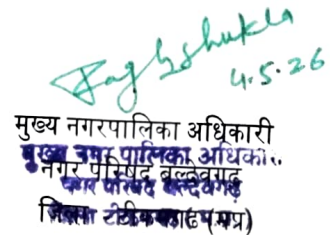 4.5.26
मुख्य नगरपालिका अधिकारी
मुख्य नगर पालिका अधिका..
नगर परिषद बल्देवगढ़
नगर परिषद बल्देवगढ़
जिला टीकमगढ़ (म.प्र)